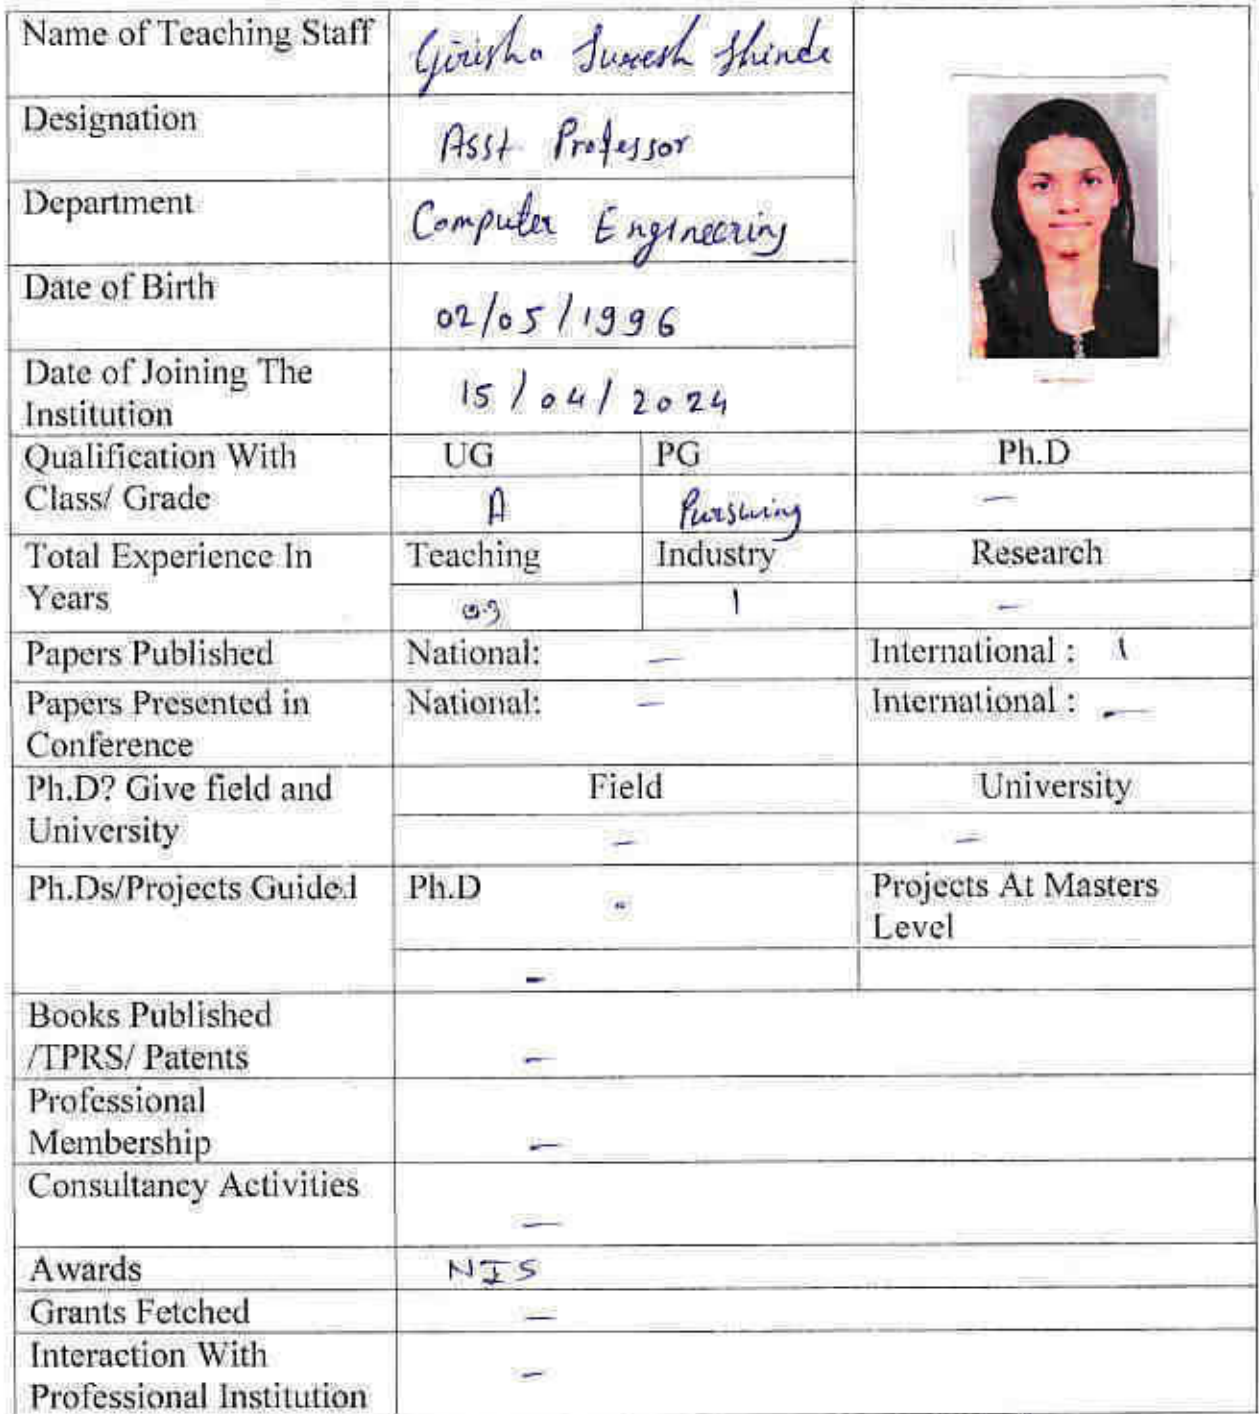 Name of Teaching Staff Girisha Suresh Shinde
Designation Asst Professor
Department Computer Engineering
Date of Birth 02/05/1996
Date of Joining The
Institution 15/04/2024
Qualification With UG PG Ph.D
Class/ Grade A Pursuing –
Total Experience In Teaching Industry Research
Years 1 –
Papers Published National: – International : 1
Papers Presented in National: – International : –
Conference
Ph.D? Give field and Field University
University – –
Ph.Ds/Projects Guided Ph.D - Projects At Masters
Level
-
Books Published
/TPRS/ Patents –
Professional
Membership –
Consultancy Activities
–
Awards NIS
Grants Fetched –
Interaction With
Professional Institution –